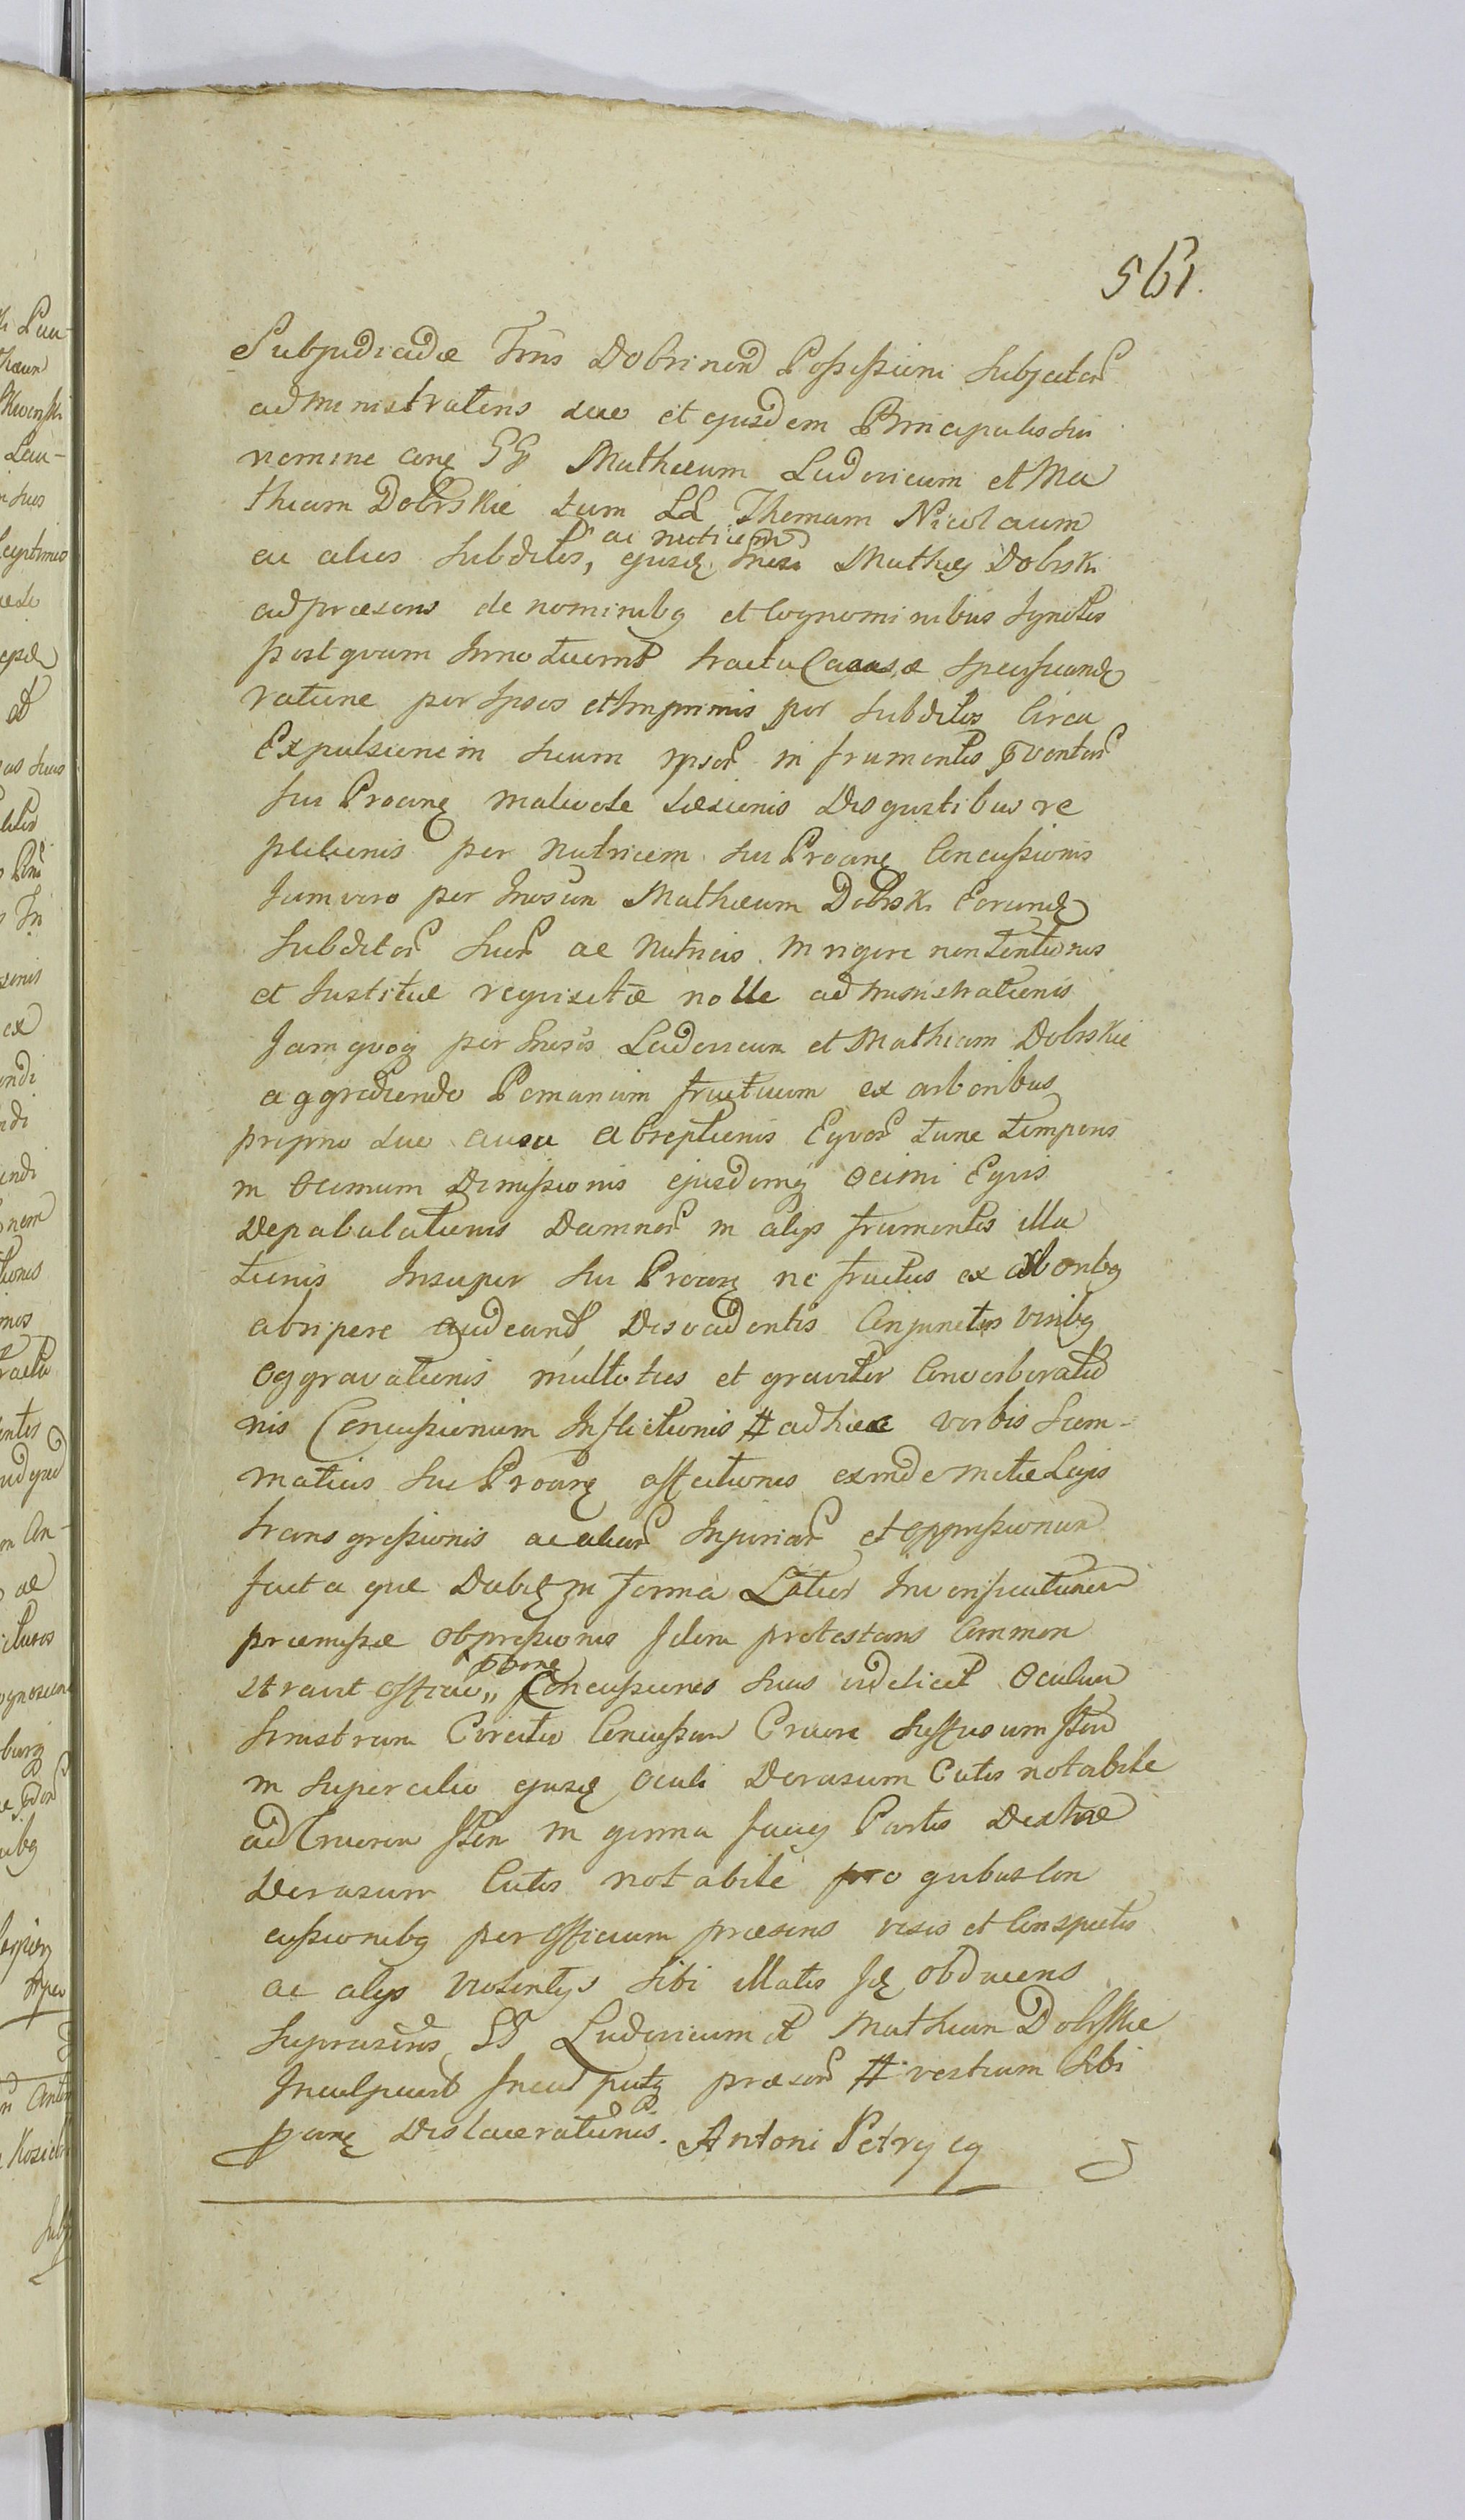 561.
Subjudicadæ Trris Dobrinen Possessioni Subjectar
administratens suo et ejusdem Principalis sui
nomine conq GG Mathæum Ludovicum et Ma
thiam Dobrskie tum LL Thomam Nicolaum
ac nutricem
ac alios subditos, ejusdq Gnesi Mathæj Dobrski
ad præsens de nominibq et Cognominibus Ignotos
postquam Innotuerint tractu Causæ specificand
ratione per Ipsos et Imprimis per subditos Circa
Expulsionem suum ipsor in frumentis
sui Proconq malivole læsionis Disgustibus re
pletionis per Nutricem sui Proconq Concussionis
Jam vero per Gnosum Mathæum Dobrski Eorumd
Subditor suor ac Nutricis in rigore non tentionis
et Justitiæ requisitæ nolle administrationis
Jam quoq per Gnosos Ludovicum et Mathiam Dobrskie
aggrediendo Pomarium fructuum ex arboribus
proprio suo ausu abreptionis Equor tunc temporis
in Ocimum Dimissionis ejusdemq Ocimi Equis
Depabulationis Damnor in alijs frumentis illa
tionis Insuper sui Proconq ne fructus ex arboribq
abripere audeant, Disvadentis Conjunctis viribq
aggravationis multoties et graviter Converberatio
nis Concussionum Inflictionis # ad hæc verbis Sum-
maticis sui Proconq affectionis exinde metæ Legis
transgressionis ac aliar Injuriar et oppressionum
facta quæ Dabit in forma Latiori In verificationem
præmissæ obpressionis Idem protestans Common
stravit officio,, Concussiones suas videlicet Oculum
sinistrum Circiter Concussum Cruore suffusum Item
in supercilio ejusdq oculi Derasum Cutis notabile
ad Cruorem Item in genna faciej Partis Dextræ
Derasum Cutis notabile pro quibus Con
cussionibq per officium præsens visis et Conspectis
ac alijs violentijs sibi illatis Id obducens
suprascros GG Ludovicum et Mathiam Dobrskie
Inculpavit præsen # vestium sibi
Dislacerationis. Antoni Petrycy